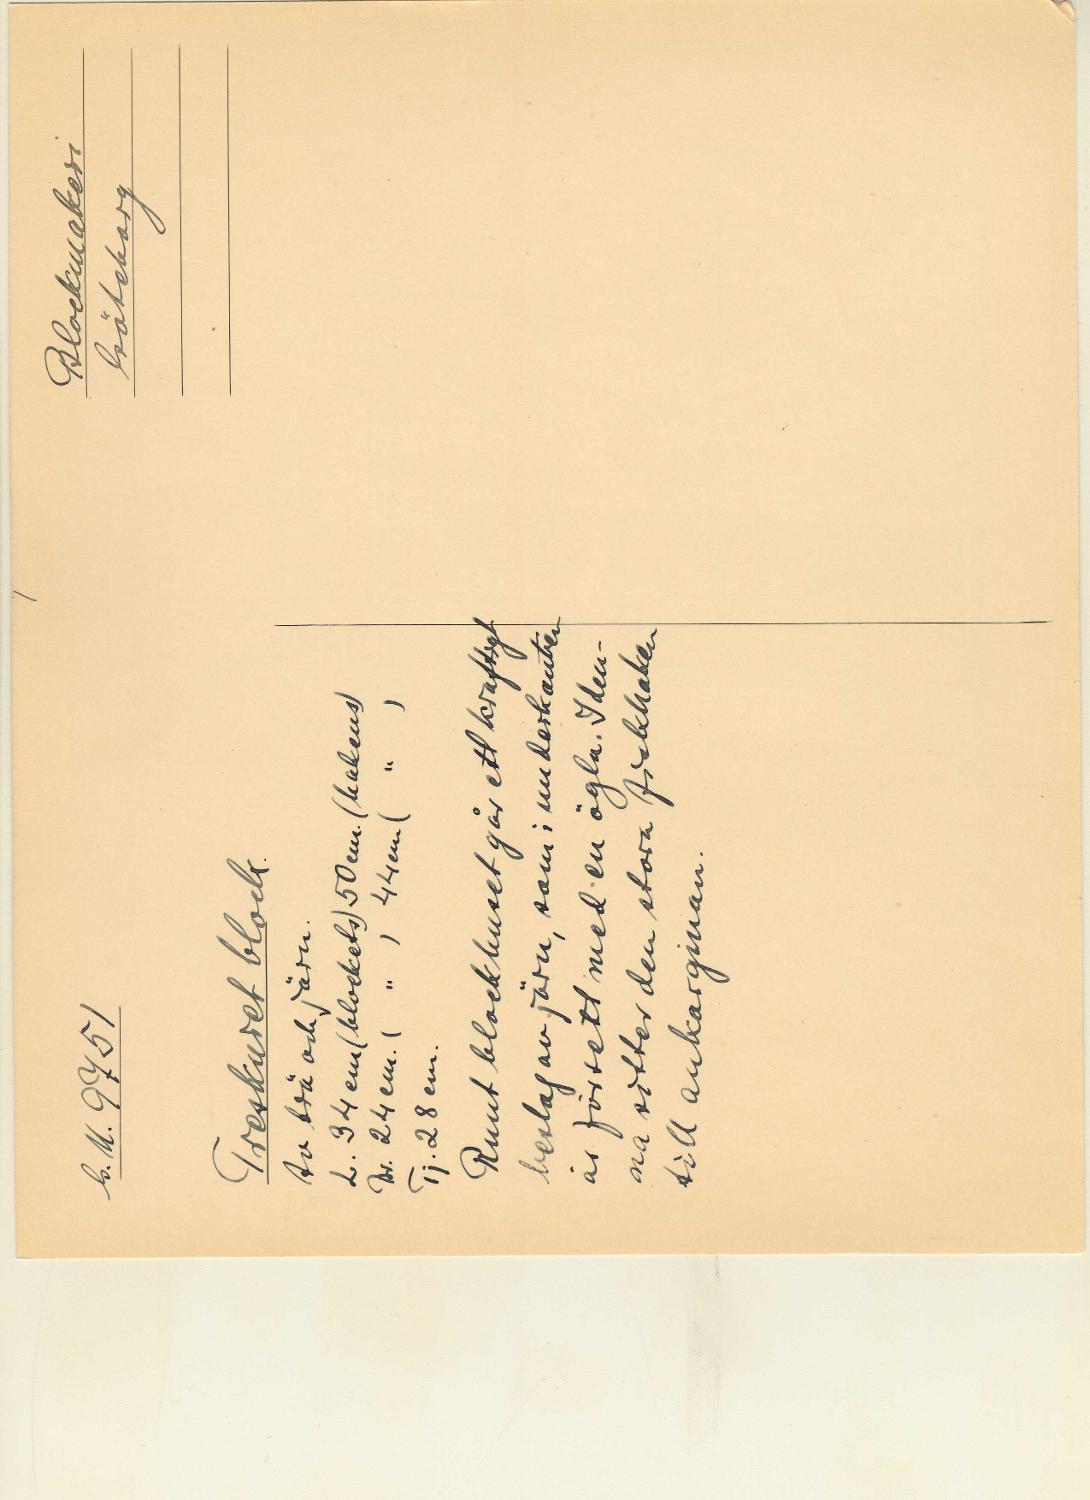 G.M. 9751
Blockmakeri
Göteborg
Treskuret block.
av trä och järn.
L. 34 cm (blockets) 50 cm. (hakens)
Br. 24 cm. ( " ) 44 cm ( " )
Tj. 28 cm.
Runt blockhuset går ett kraftigt
beslag av järn, som i underkanten
är försett med en ögla. I den-
na sitter den stora fiskhaken
till ankarginan.